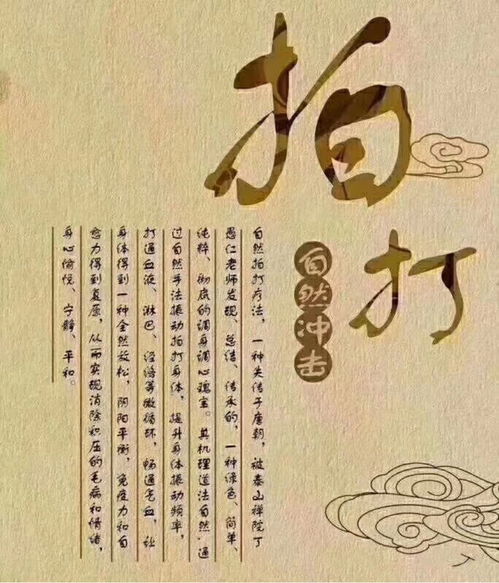 拍打
自然冲击
自然拍打疗法，一种失传于唐朝，被泰山禅院丁
愚仁老师发现、总结、传承的，一种绿色、简单、
纯粹、彻底的调身调心瑰宝。其机理道法自然·通
过自然手法振动拍打身体，提升身体振动频率，
打通血液、淋巴、经络等微循环，畅通气血，让
身体得到一种全然放松，阴阳平衡，免疫力和自
愈力得到复原，从而实现消除积压的毛病和情绪，
身心愉悦、宁静、平和。